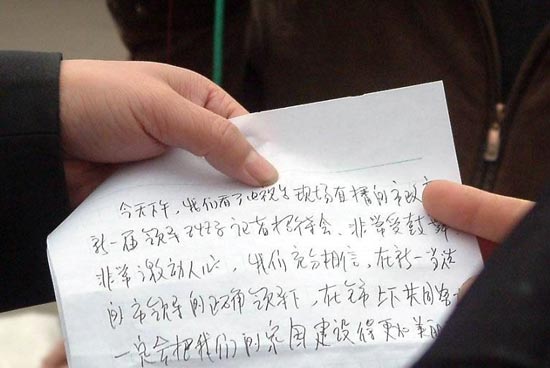 今天下午,我们看了电视台现场直播的市政府
新一届领导 记者招待会、非常受鼓舞
非常激动人心,我们充分相信,在新一当选
的市领导的正确领导下,在全市上下共同
一定会把我们的家园建设得更加美丽